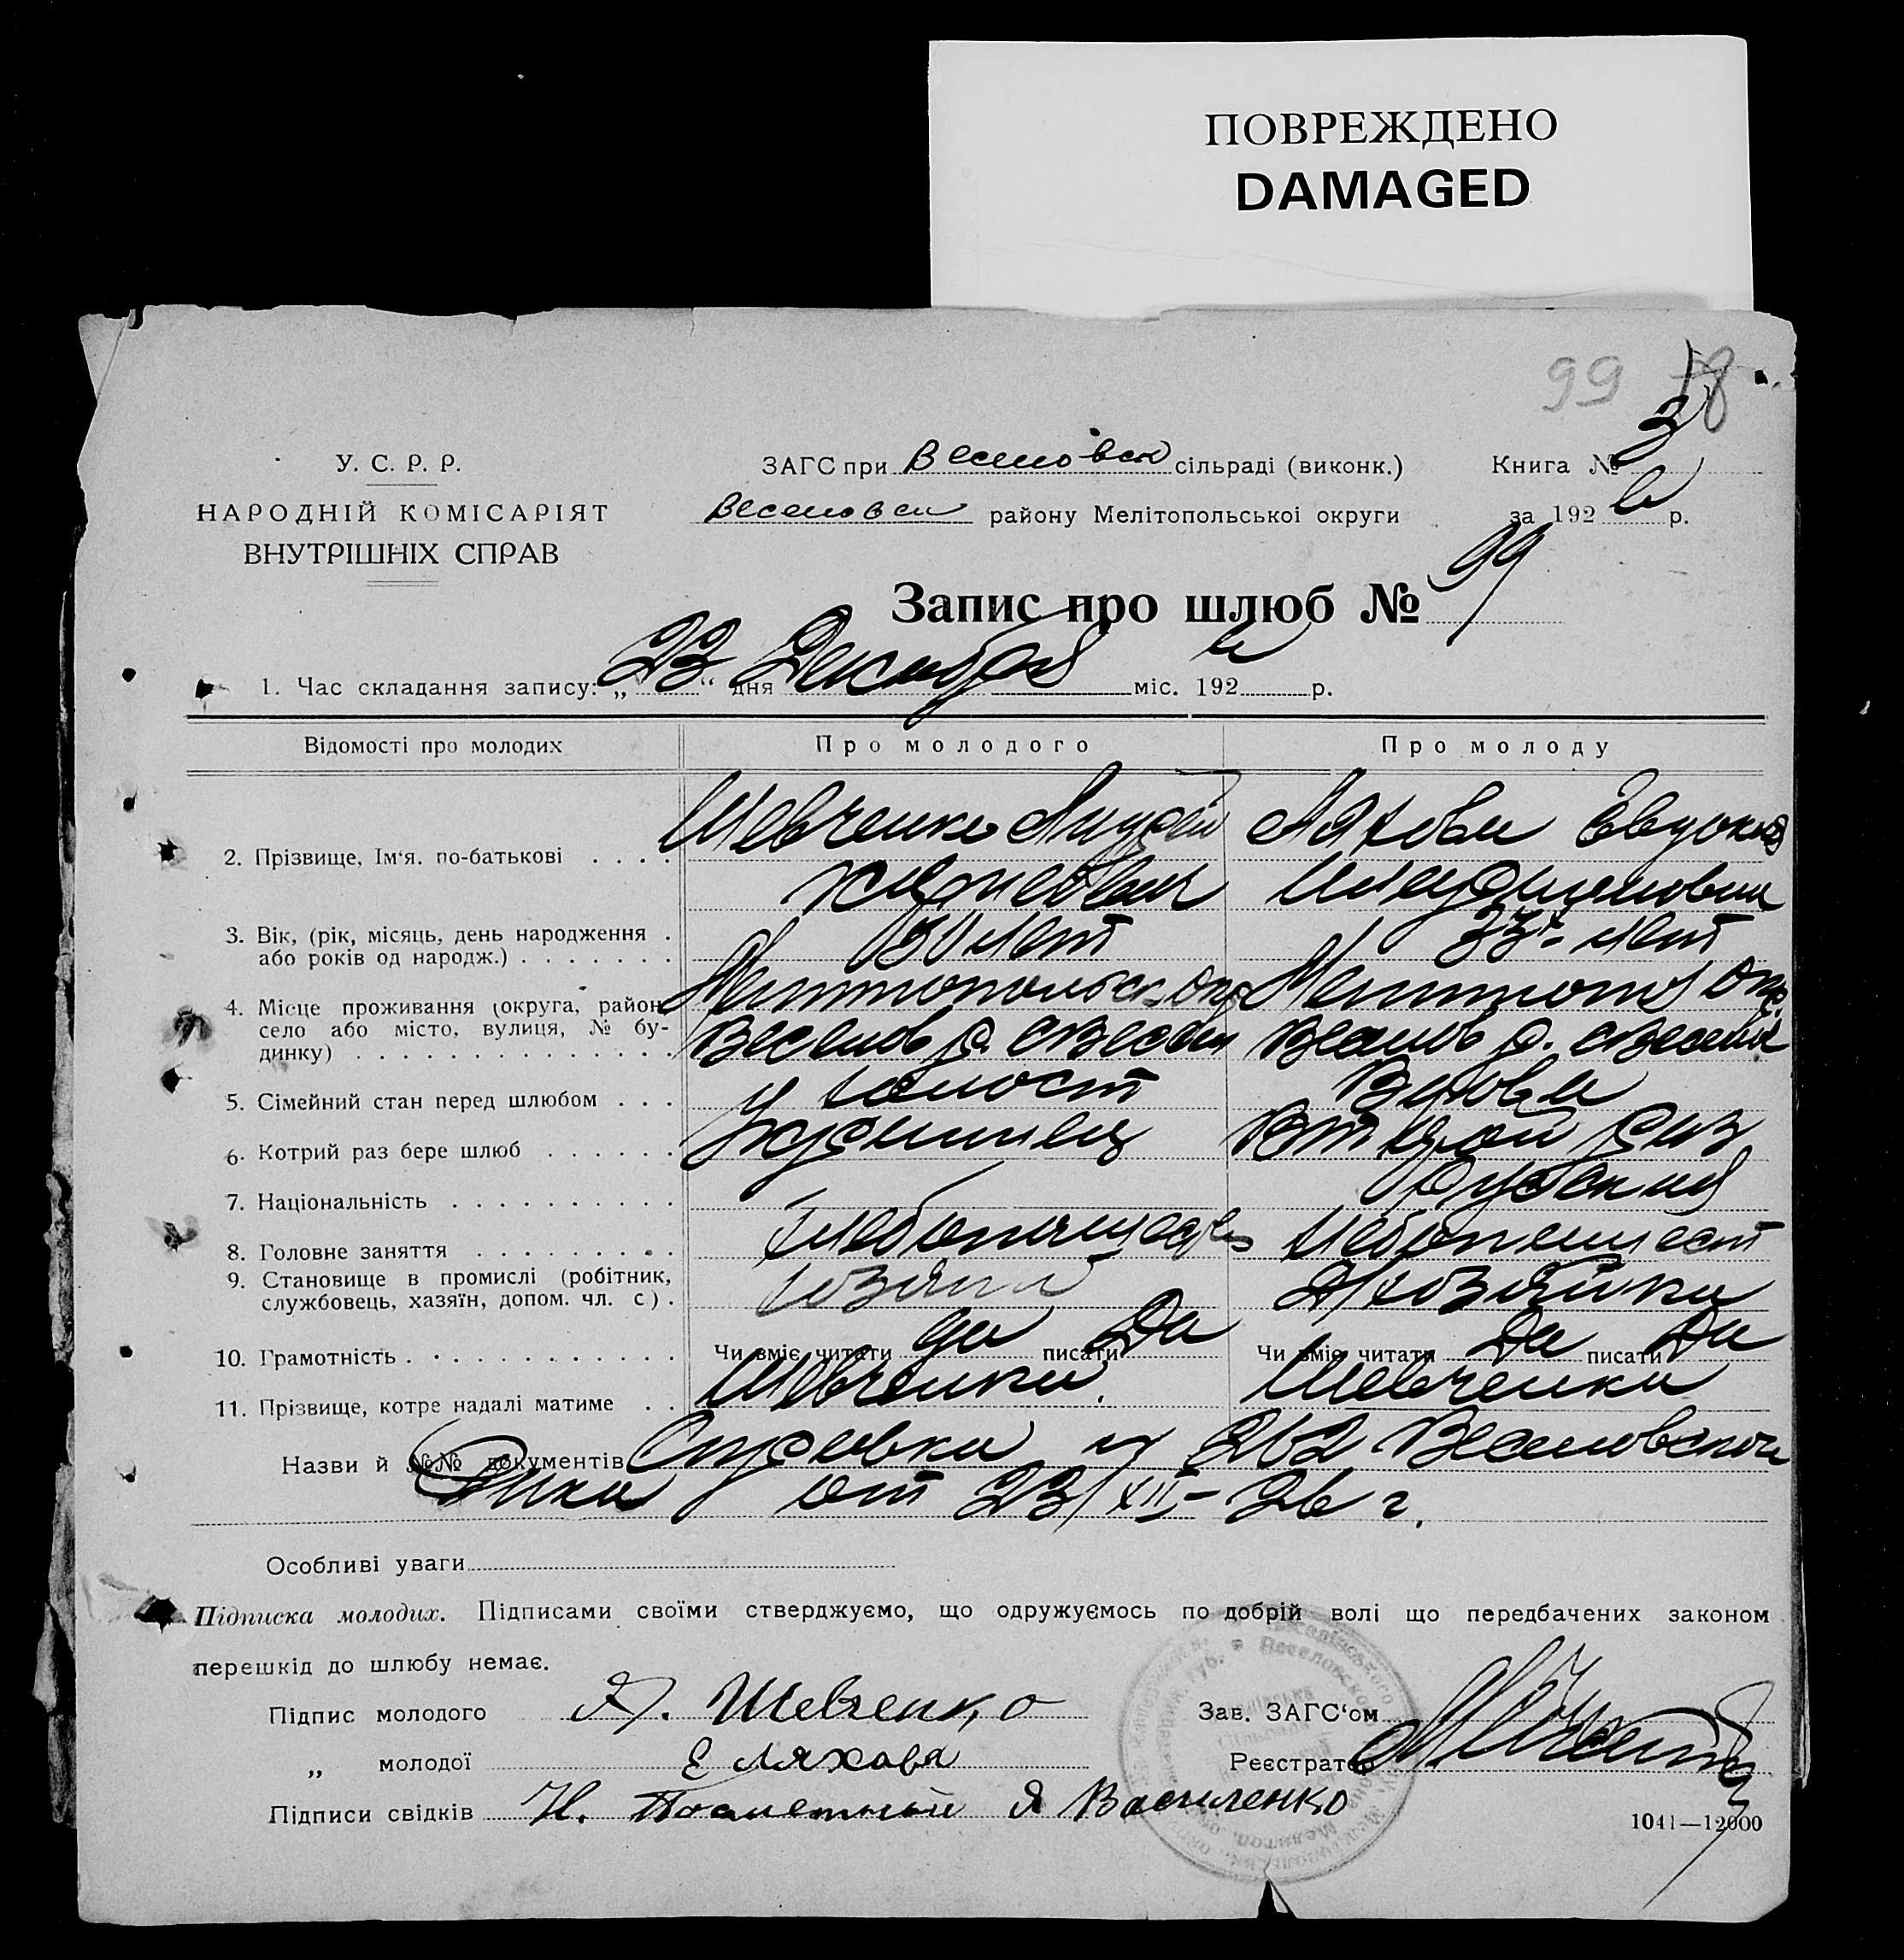 ПОВРЕЖДЕНО
DAMAGED
99 18
У. С. Р. Р.
НАРОДНІЙ КОМІСАРІЯТ
ВНУТРІШНІХ СПРАВ
ЗАГС при Веселовск сільраді (виконк.)
Книга № 3
Веселовск району Мелітопольської округи
за 1926 р.
Запис про шлюб № 99
1. Час складання запису: „23“ дня Декабря міс. 1926 р.
Відомості про молодих
Про молодого
Про молоду
2. Прізвище, Ім‘я. по-батькові . . . .
Шевченко Андрей
Ляхова Евдокия
3. Вік, (рік, місяць, день народження .
або років од народж.) . . . . . . .
лет
33 лет
4. Місце проживання (округа, район
село або місто, вулиця, № бу-
динку) . . . . . . . . . . . . . .
Мелитопольск. окр
Мелитопол окр.
Веселов р. с Веселое
Веселов р. с Веселое
5. Сімейний стан перед шлюбом . . .
холост
Вдова
6. Котрий раз бере шлюб . . . . . .
Второй раз
7. Національність . . . . . . . . . .
Украинец
Русская
8. Головне заняття . . . . . . . . .
Хлебопашество
Хлебопашест
9. Становище в промислі (робітник,
службовець, хазяїн, допом. чл. с.) .
хозяин
Хозяйка
10. Грамотність . . . . . . . . . . . .
Чи вміє читати да писати Да
Чи вміє читати Да писати Да
11. Прізвище, котре надалі матиме . .
Шевченко.
Шевченко
Назви й №№ документів Справка № 262 Веселовской
от 23/XII-26 г.
Особливі уваги
Підписка молодих. Підписами своїми стверджуємо, що одружуємось по добрій волі що передбачених законом
перешкід до шлюбу немає.
Підпис молодого А. Шевченко
Зав. ЗАГС‘ом
„ молодої Е Ляхова
Реєстратор
Підписи свідків Н. Василенко
1041—12000